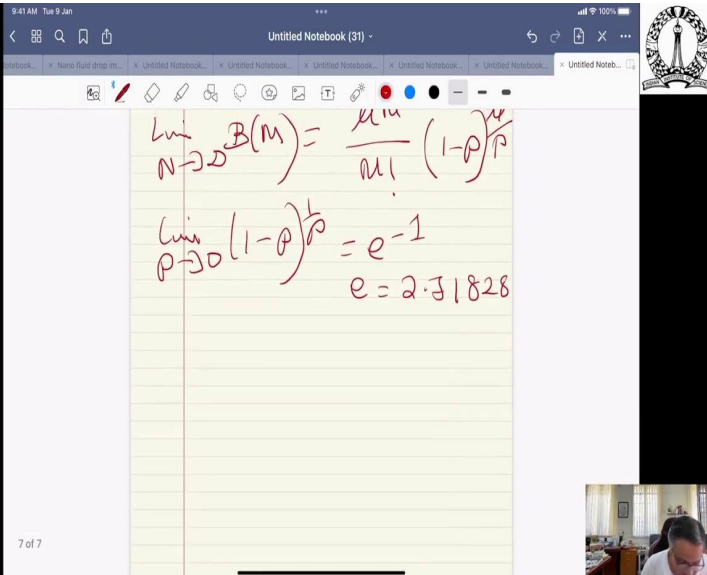 9:41 AM Tue 9 Jan
100%
Untitled Notebook (31)
Notebook... × Nano fluid drop im... × Untitled Notebook... × Untitled Notebook... × Untitled Notebook... × Untitled Notebook... × Untitled Noteb...
Lim N→∞ B(M) = μ^M / M! (1-p)^(μ/p)
Lim p→0 (1-p)^(1/p) = e^-1
e = 2.71828
7 of 7